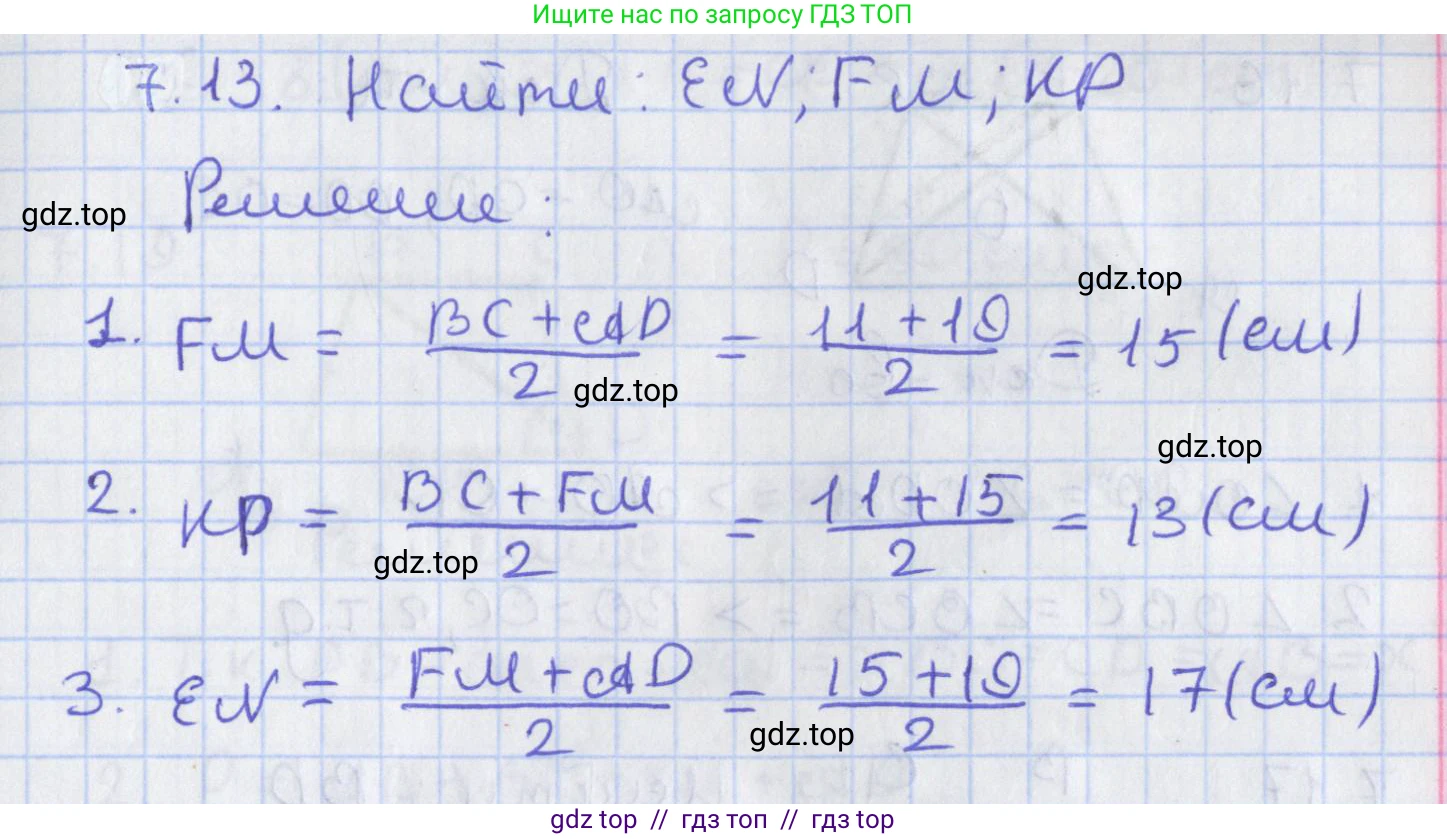 Ищите нас по запросу ГДЗ ТОП
7.13. Найти: EN; FM; KP
Решение:
gdz.top
gdz.top
1. FM = (BC + AD)/2 = (11 + 19)/2 = 15 (см)
gdz.top
gdz.top
2. KP = (BC + FM)/2 = (11 + 15)/2 = 13 (см)
gdz.top
3. EN = (FM + AD)/2 = (15 + 19)/2 = 17 (см)
gdz.top
gdz top // гдз топ // гдз top